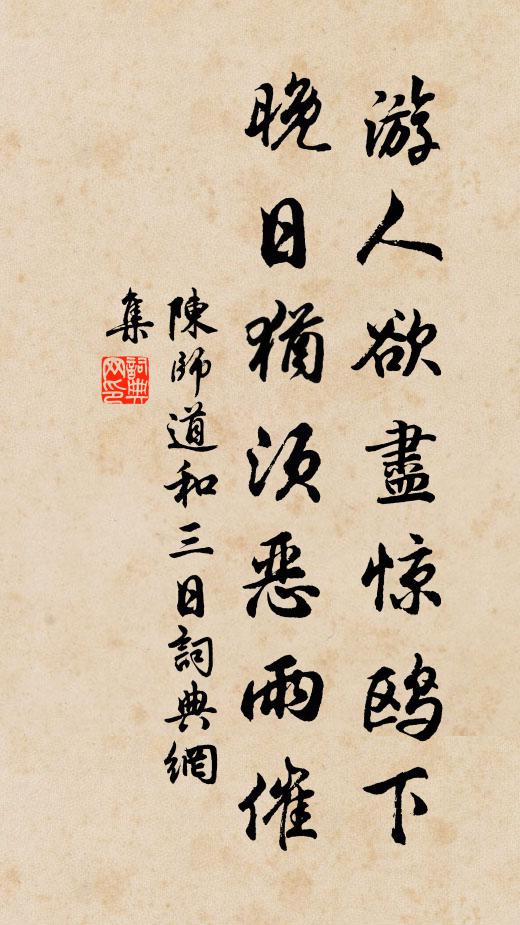 游人欲盡惊鸥下
晚日猶須恶雨催
陳師道和三日詞典網
集
詞典网印